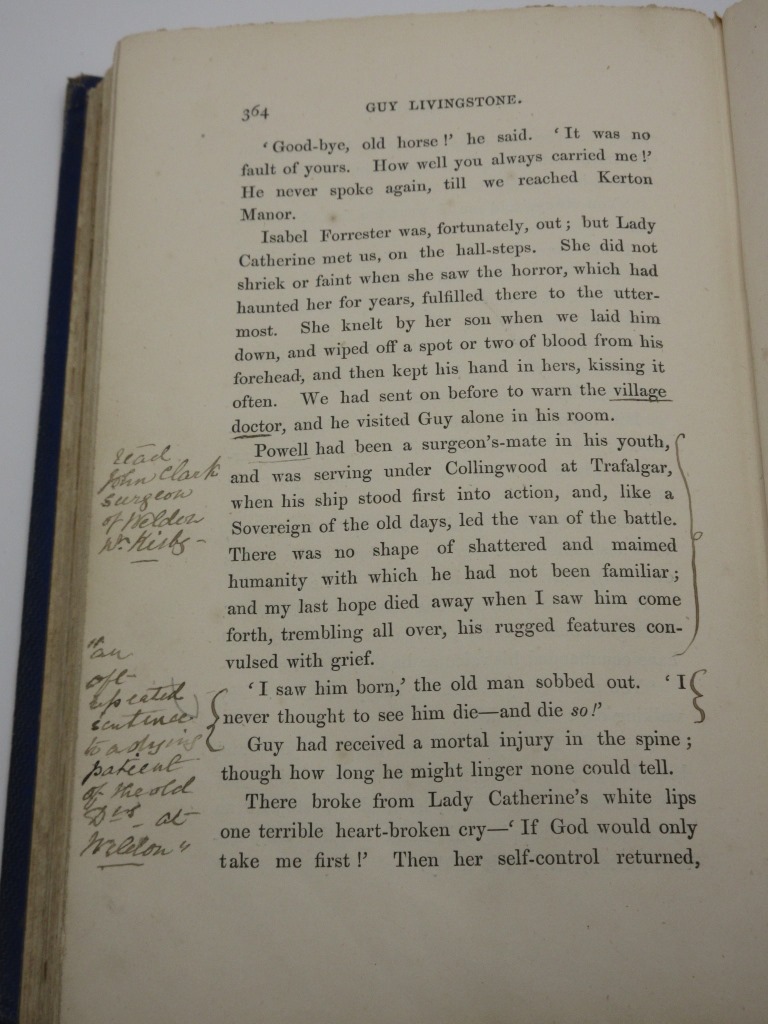 364
GUY LIVINGSTONE.
‘Good-bye, old horse!’ he said. ‘It was no
fault of yours. How well you always carried me!’
He never spoke again, till we reached Kerton
Manor.
Isabel Forrester was, fortunately, out; but Lady
Catherine met us, on the hall-steps. She did not
shriek or faint when she saw the horror, which had
haunted her for years, fulfilled there to the utter-
most. She knelt by her son when we laid him
down, and wiped off a spot or two of blood from his
forehead, and then kept his hand in hers, kissing it
often. We had sent on before to warn the village
doctor, and he visited Guy alone in his room.
Powell had been a surgeon’s-mate in his youth,
and was serving under Collingwood at Trafalgar,
when his ship stood first into action, and, like a
Sovereign of the old days, led the van of the battle.
There was no shape of shattered and maimed
humanity with which he had not been familiar;
and my last hope died away when I saw him come
forth, trembling all over, his rugged features con-
vulsed with grief.
‘I saw him born,’ the old man sobbed out. ‘I
never thought to see him die—and die so!’
Guy had received a mortal injury in the spine;
though how long he might linger none could tell.
There broke from Lady Catherine’s white lips
one terrible heart-broken cry—‘If God would only
take me first!’ Then her self-control returned,
read
John Clark
surgeon
of Weldon
"an
oft
repeated
sentence
to a dying
patient
of the old
Drs - at
Weldon"